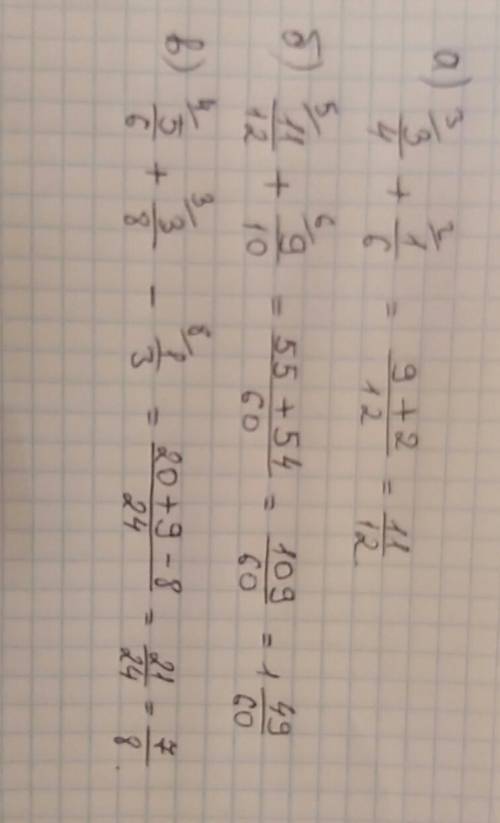 а) ³/3/4 + ²/1/6 = 9+2/12 = 11/12
б) ⁵/11/12 + ⁶/9/10 = 55+54/60 = 109/60 = 1 49/60
в) ⁴/5/6 + ³/3/8 - ⁸/1/3 = 20+9-8/24 = 21/24 = 7/8.